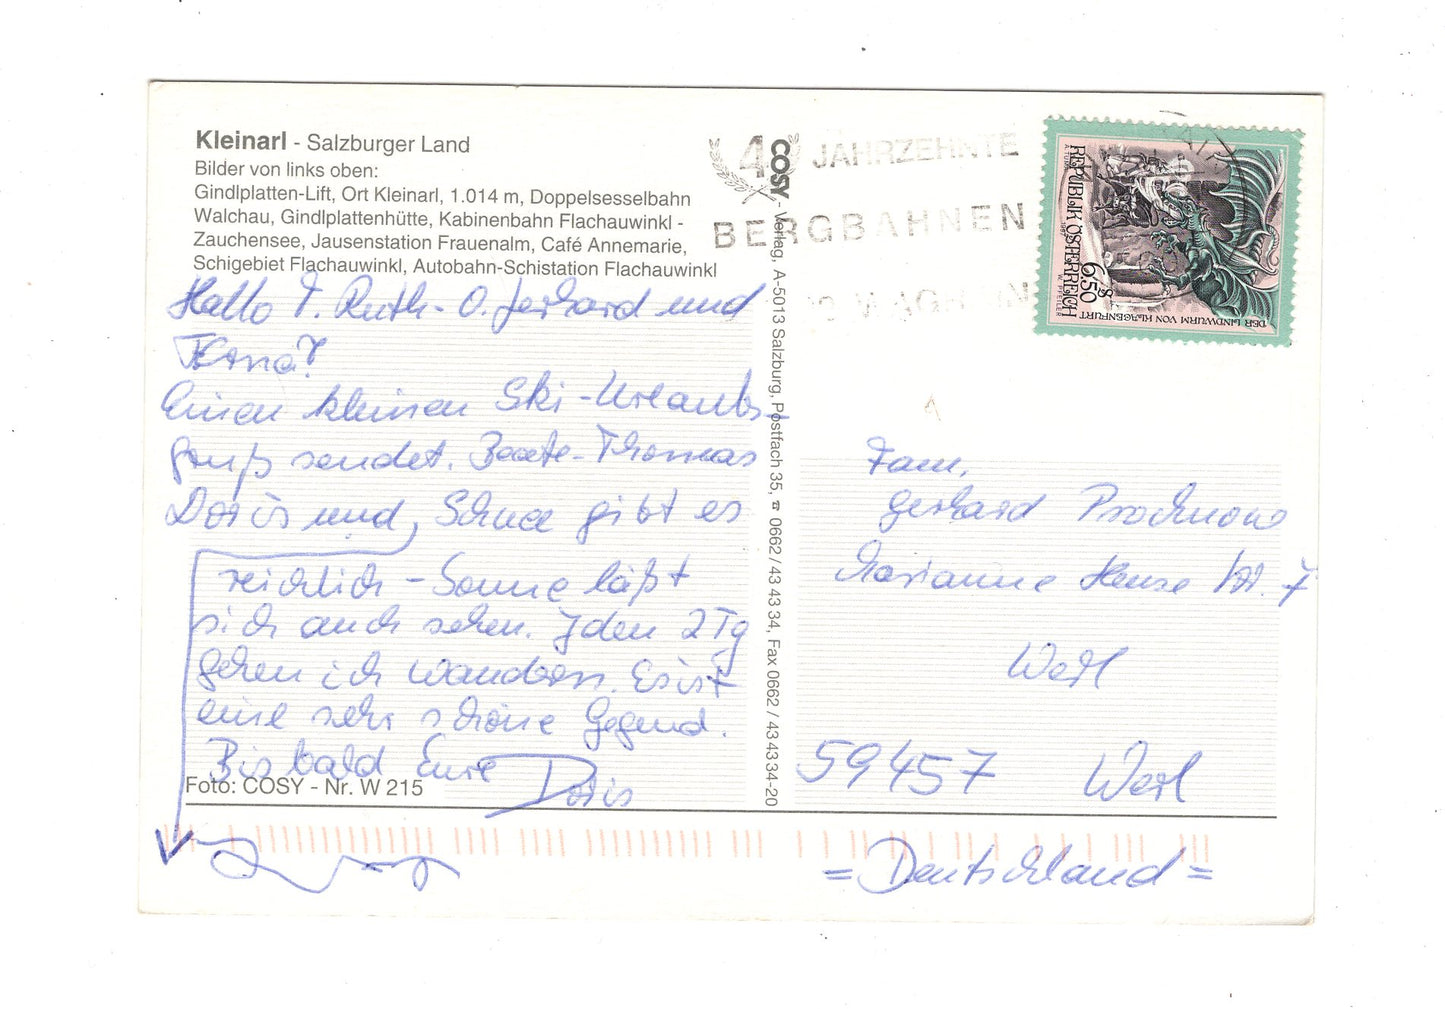 Kleinarl - Salzburger Land
Bilder von links oben:
Gindlplatten-Lift, Ort Kleinarl, 1.014 m, Doppelsesselbahn
Walchau, Gindlplattenhütte, Kabinenbahn Flachauwinkl -
Zauchensee, Jausenstation Frauenalm, Café Annemarie,
Schigebiet Flachauwinkl, Autobahn-Schistation Flachauwinkl
Hallo T. Ruth - O. Gerhard und
Einen kleinen Ski-Urlaubs-
gruß sendet. Beate - Thomas
Doris und, Schnee gibt es
reichlich - Sonne läßt
sich auch sehen. Jden 2 Tg
gehen ich wandern. Es ist
eine sehr schöne Gegend.
Bis bald Eure Doris
Foto: COSY - Nr. W 215
COSY - Verlag, A-5013 Salzburg, Postfach 35, ☎ 0662 / 43 43 34, Fax 0662 / 43 43 34-20
4 JAHRZEHNTE
BERGBAHNEN
REPUBLIK ÖSTERREICH
6.50 S
DER LINDWURM VON KLAGENFURT
W. PFEILER
1997
Fam.
Gerhard Prochnow
Marianne Heese Str. 7
Werl
59457 Werl
= Deutschland =